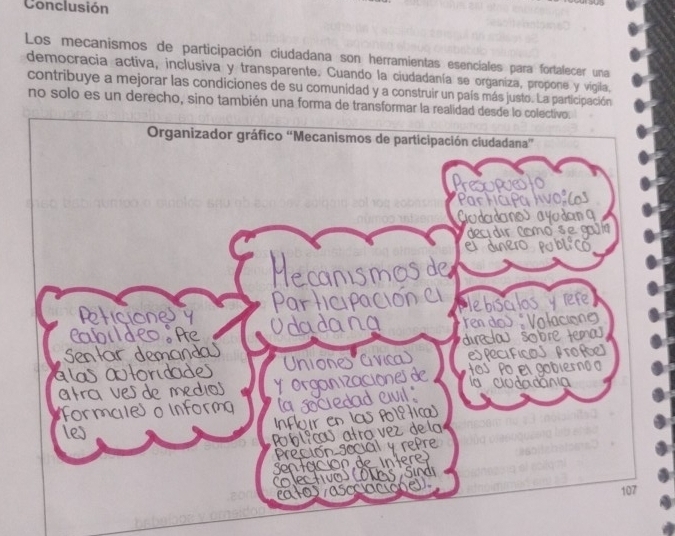 Conclusión
Los mecanismos de participación ciudadana son herramientas esenciales para fortalecer una
democracia activa, inclusiva y transparente. Cuando la ciudadanía se organiza, propone y vigila,
contribuye a mejorar las condiciones de su comunidad y a construir un país más justo. La participación
no solo es un derecho, sino también una forma de transformar la realidad desde lo colectivo.
Organizador gráfico "Mecanismos de participación ciudadana"
Presupuesto
Participativo: Los
Ciudadanos ayudan a
decidir como se gasta
el dinero publico
Mecanismos de
Participación ci
udadana
Peticiones y
cabildeo: Pre
sentar demandas
a las autoridades
atra ves de medios
formales o informa
les
Plebiscitos y refe
rendos: Votaciones
directas sobre temas
especificos propues
tos po el gobierno o
la ciudadania
Uniones civicas
y organizaciones de
la sociedad civil:
Influir en las politicas
publicas atra vez de la
preción social y repre
sentacion de interes
colectivos (ONGs, sindi
catos, asociaciones).
107